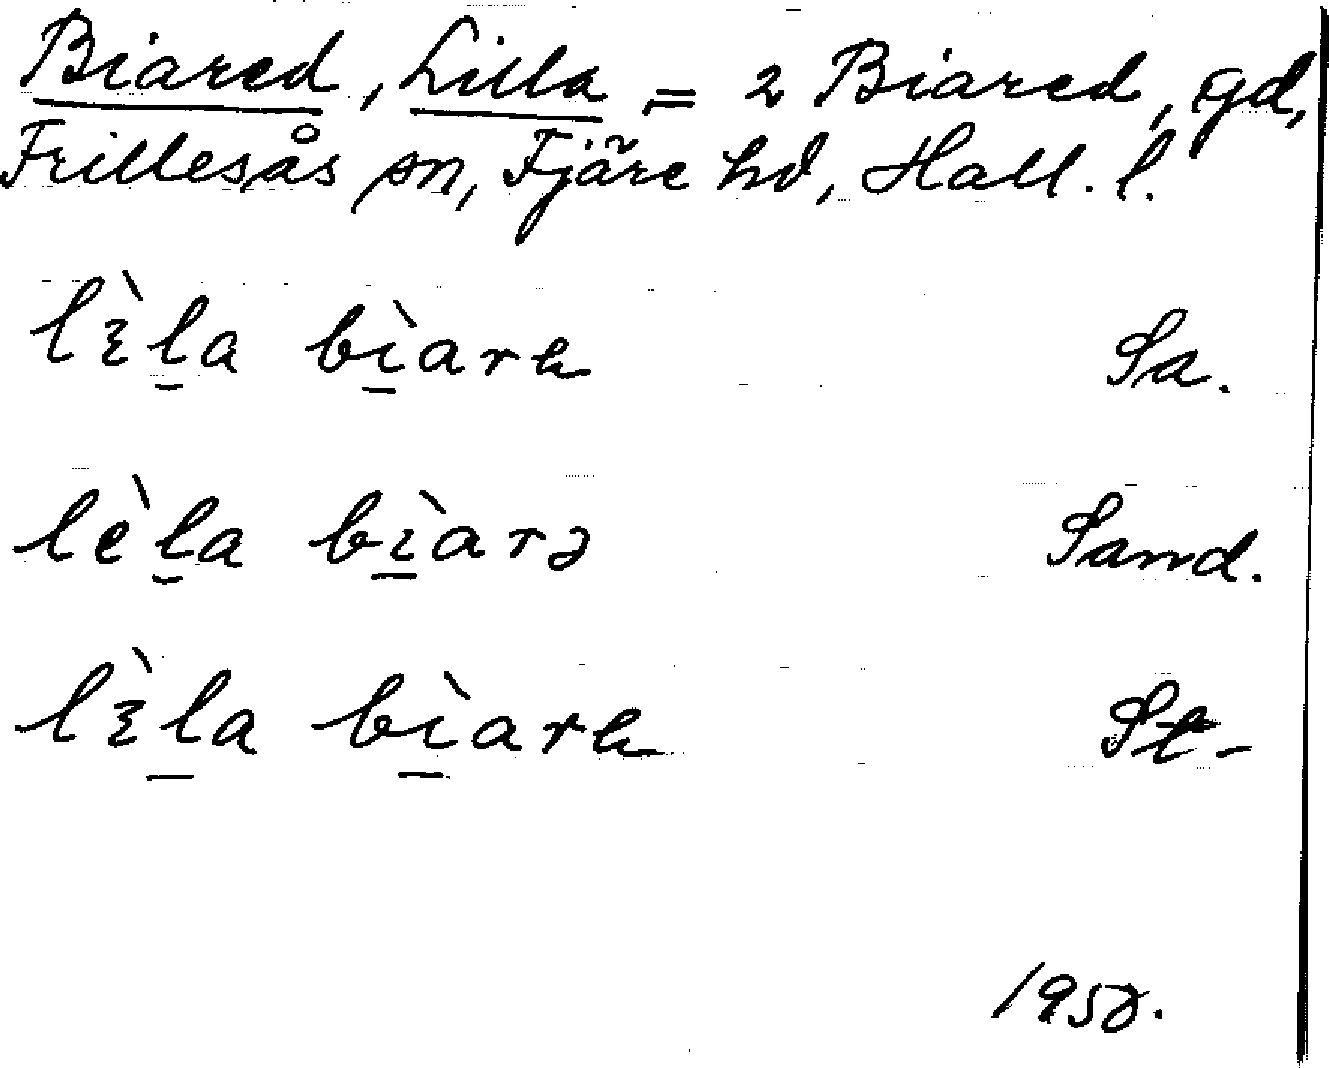 Biared, Lilla = 2 Biared, gd,
Frillesås sn, Fjäre hd, Hall. l.
lɛ̀l̠a bì̠arɐ Sa.
lèl̠a bì̠arə Sand.
lɛ̀l̠a bì̠arɐ St.